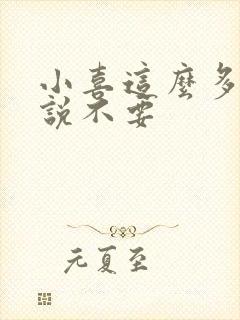 小喜這麼多
說不要
元夏至